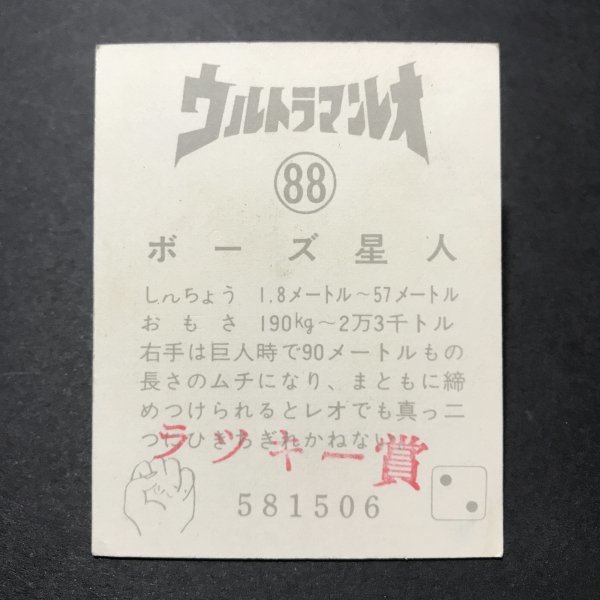 ウルトラマンレオ
88
ボーズ星人
しんちょう 1.8メートル～57メートル
おもさ 190kg～2万3千トル
右手は巨人時で90メートルもの
長さのムチになり、まともに締
めつけられるとレオでも真っ二
つにひきちぎれかねない
ラッキー賞
581506